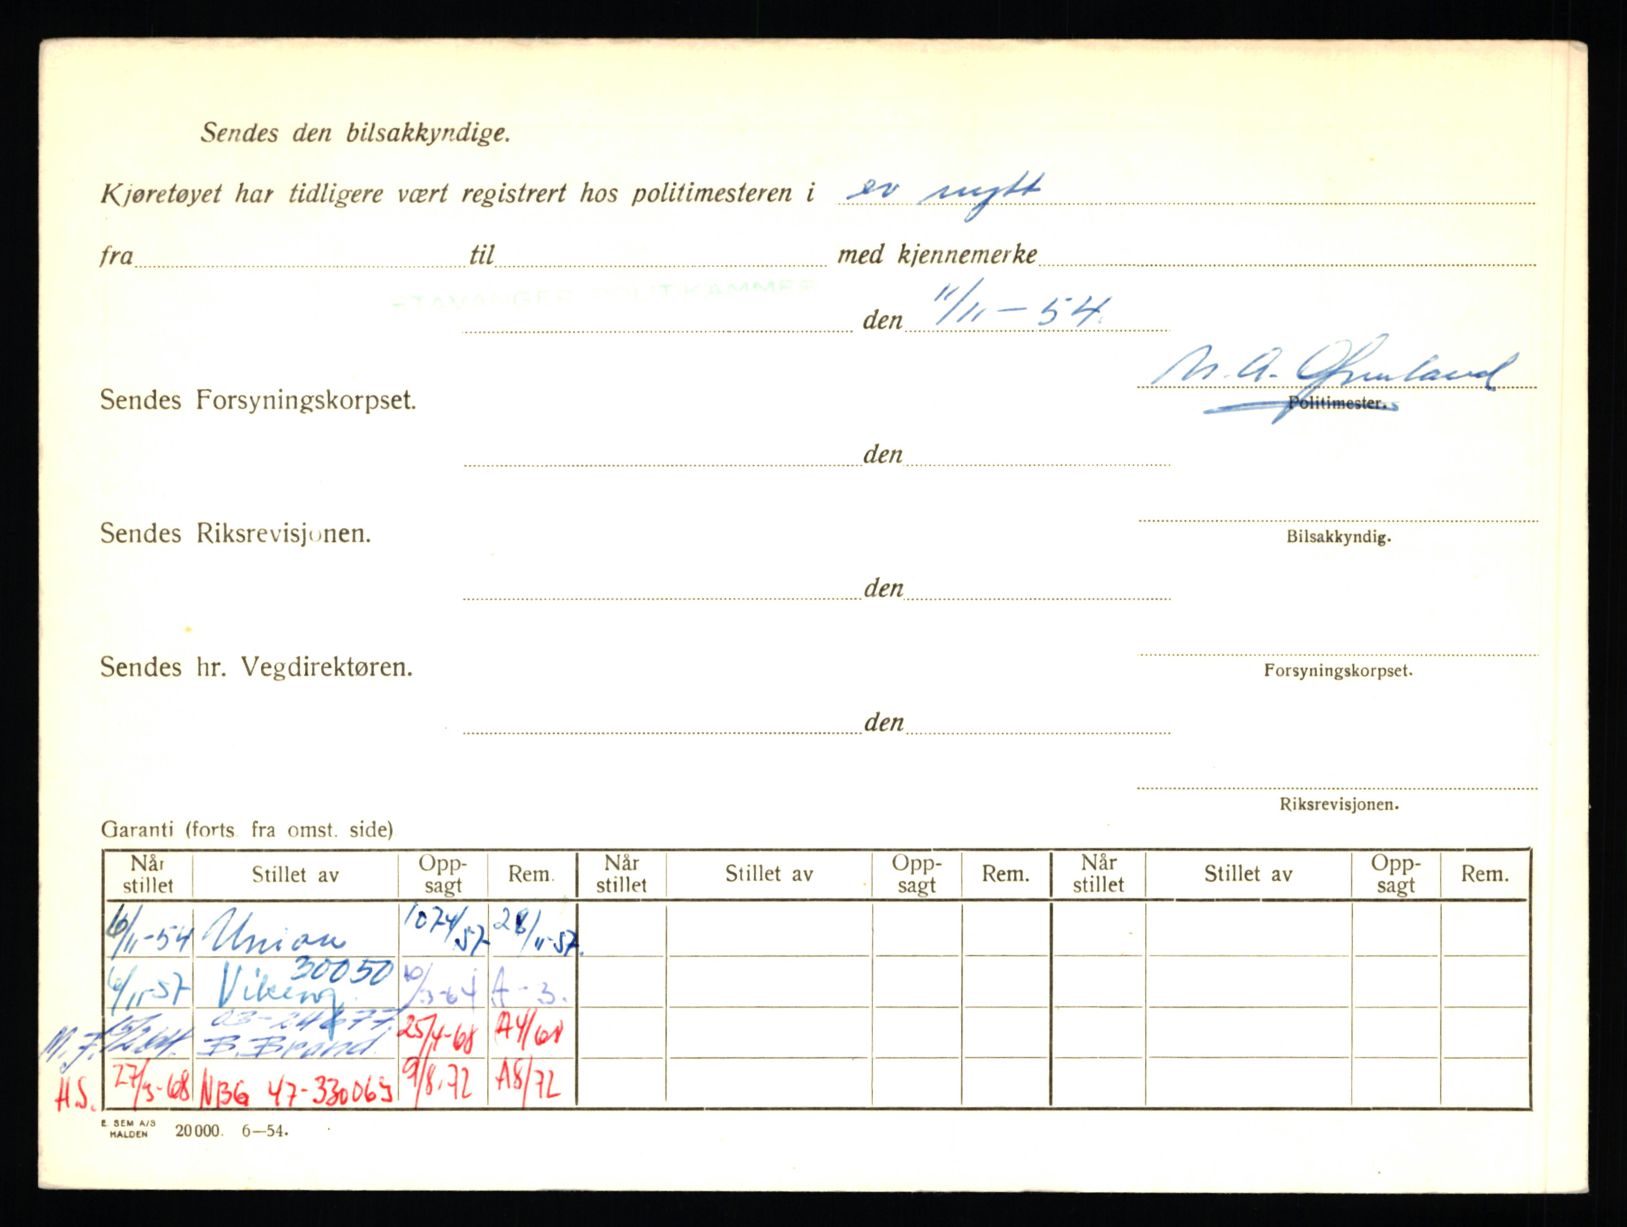 Sendes den bilsakkyndige.
Kjøretøyet har tidligere vært registrert hos politimesteren i er nytt
fra til med kjennemerke
STAVANGER POLITIKAMMER
den 11/11-54.
Sendes Forsyningskorpset.
Politimester.
den
Sendes Riksrevisjonen.
Bilsakkyndig.
den
Sendes hr. Vegdirektøren.
Forsyningskorpset.
den
Riksrevisjonen.
Garanti (forts. fra omst. side)
Når stillet Stillet av Opp-sagt Rem. Når stillet Stillet av Opp-sagt Rem. Når stillet Stillet av Opp-sagt Rem.
/11-54 Union 1074/57 28/11-57.
6/11-57 Viking 30050 /3-64 A-3.
B. Brand 25/4-68 A4/68
H.S. 27/3-68 NBG 47-330063 9/8-72 A8/72
E. SEM A/S
HALDEN 20000. 6—54.